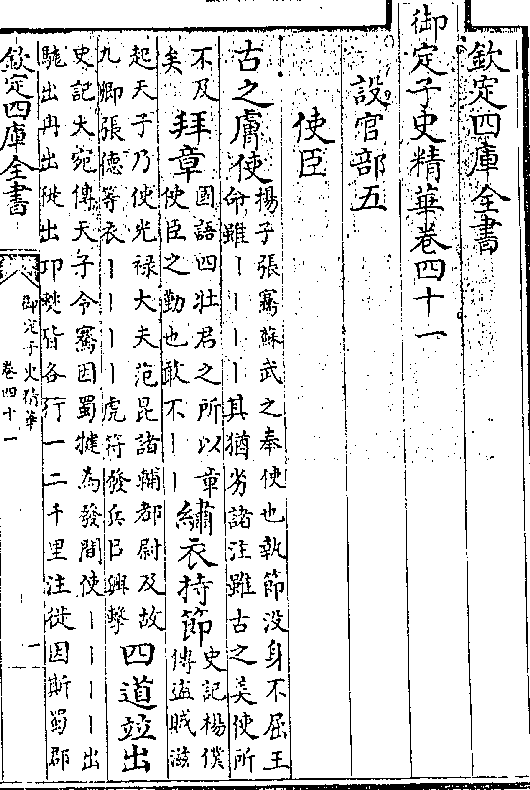 欽定四庫全書
御定子史精華卷四十一
設官部五
使臣
古之膚使
楊子張騫蘇武之奉使也執節没身不屈王
命雖丨丨丨丨其猶劣諸注雖古之美使所
不及
矣
拜章
國語四壯君之所以章
使臣之勤也敢不丨丨
繡衣持節
史記楊僕
傳盗賊滋
起天子乃使光禄大夫范昆諸輔都尉及故
九卿張德等衣丨丨丨丨虎符發兵㠯興擊
四道竝出
史記大宛傳天子令騫因蜀犍為發間使丨丨丨丨出
駹出冉出徙出卭僰皆各行一二千里注徙因斯蜀郡
欽定四庫全書
御定子史精華
卷四十一
一